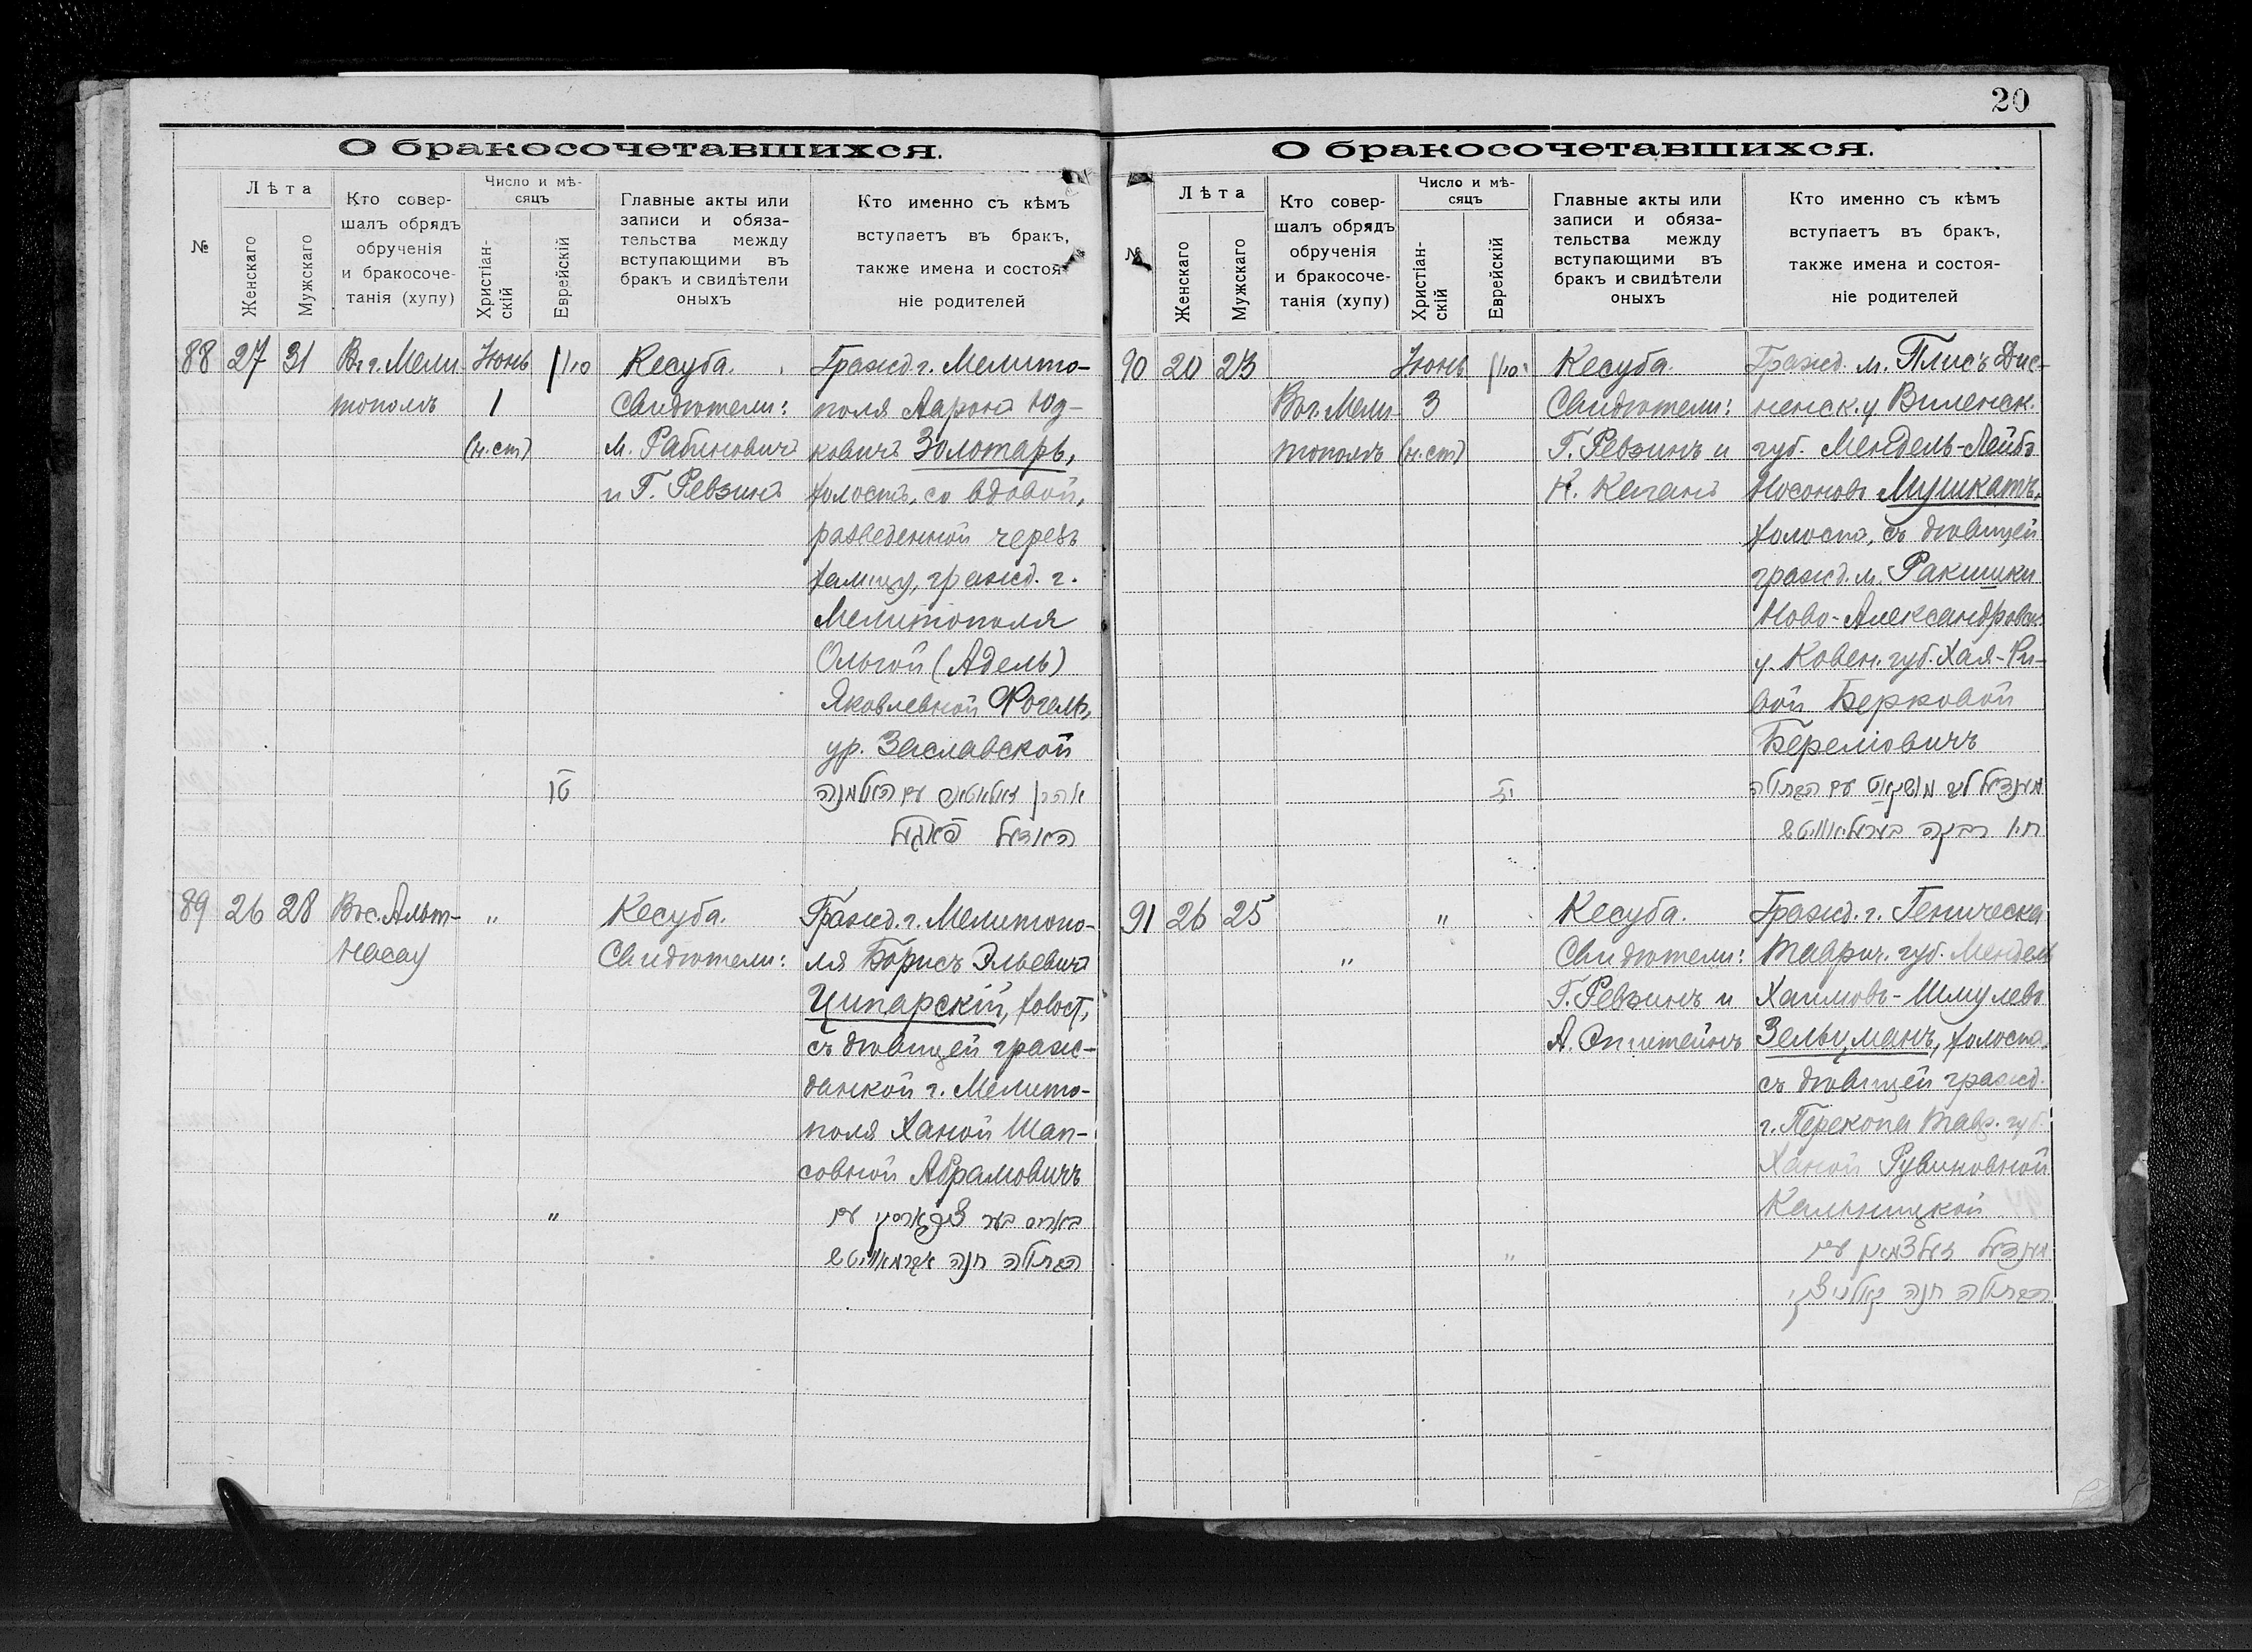 20
О бракосочетавшихся.
№
Лѣта
Женскаго
Мужскаго
Кто совер-
шалъ обрядъ
обрученія
и бракосоче-
танія (хупу)
Число и мѣ-
сяцъ
Христіан-
скій
Еврейскій
Главные акты или
записи и обяза-
тельства между
вступающими въ
бракъ и свидѣтели
оныхъ
Кто именно съ кѣмъ
вступаетъ въ бракъ,
также имена и состоя-
ніе родителей
88 27 31
Въ г. Мели
тополѣ
Іюнь
1
(н.ст)
סיון
Кесуба.
Свидѣтели:
М. Рабиновичъ
и Г. Ревзинъ
Гражд. г. Мелито-
поля Ааронъ Юд-
ковичъ Золотарь,
холостъ, со вдовой,
разведенной черезъ
халицу, гражд. г.
Мелитополя
Ольгой (Адель)
Яковлевной Фогель,
ур. Заславской
טו
אהרן זאלאטאר עם האלמנה
האדעל פאגעל
89 26 28
Въ с. Альт-
Насау
"
Кесуба.
Свидѣтели:
Гражд. г. Мелитопо-
ля Борисъ Эльевичъ
Ципарскій, холост,
съ дѣвицей граж-
данкой г. Мелито-
поля Ханой Шап-
совной Абрамовичъ
"
באריס בער ציפארסקי עם
הבתולה חנה אבראמאוויטש
О бракосочетавшихся.
№
Лѣта
Женскаго
Мужскаго
Кто совер-
шалъ обрядъ
обрученія
и бракосоче-
танія (хупу)
Число и мѣ-
сяцъ
Христіан-
скій
Еврейскій
Главные акты или
записи и обяза-
тельства между
вступающими въ
бракъ и свидѣтели
оныхъ
Кто именно съ кѣмъ
вступаетъ въ бракъ,
также имена и состоя-
ніе родителей
90 20 23
Въ г. Мели
тополѣ
Іюнь
3
(н.ст)
סיון
Кесуба.
Свидѣтели:
Г. Ревзинъ и
Н. Каганъ
Гражд. м. Плисъ Дис-
ненск. у Виленск.
губ. Мендель-Лейбъ
Носоновъ Мушкатъ,
холостъ, съ дѣвицей
гражд. м. Ракишки
Ново-Александровск
у. Ковен. губ. Хая-Ри-
вой Берковой
Берелiовичъ
יז
מענדעל ליב מושקאט עם הבתולה
חיה רבקה בערעליאוויטש
91 26 25
"
"
Кесуба.
Свидѣтели:
Г. Ревзинъ и
А. Эпштейнъ
Гражд. г. Геническа
Таврич. губ. Мендель
Хаимовъ-Шмулевъ
Зельцманъ, холостъ,
съ дѣвицей гражд.
г. Перекопа Тавр. губ.
Ханой Рувиновной
Кальницкой
"
מענדעל זעלצמאן עם
הבתולה חנה קאלניצקי